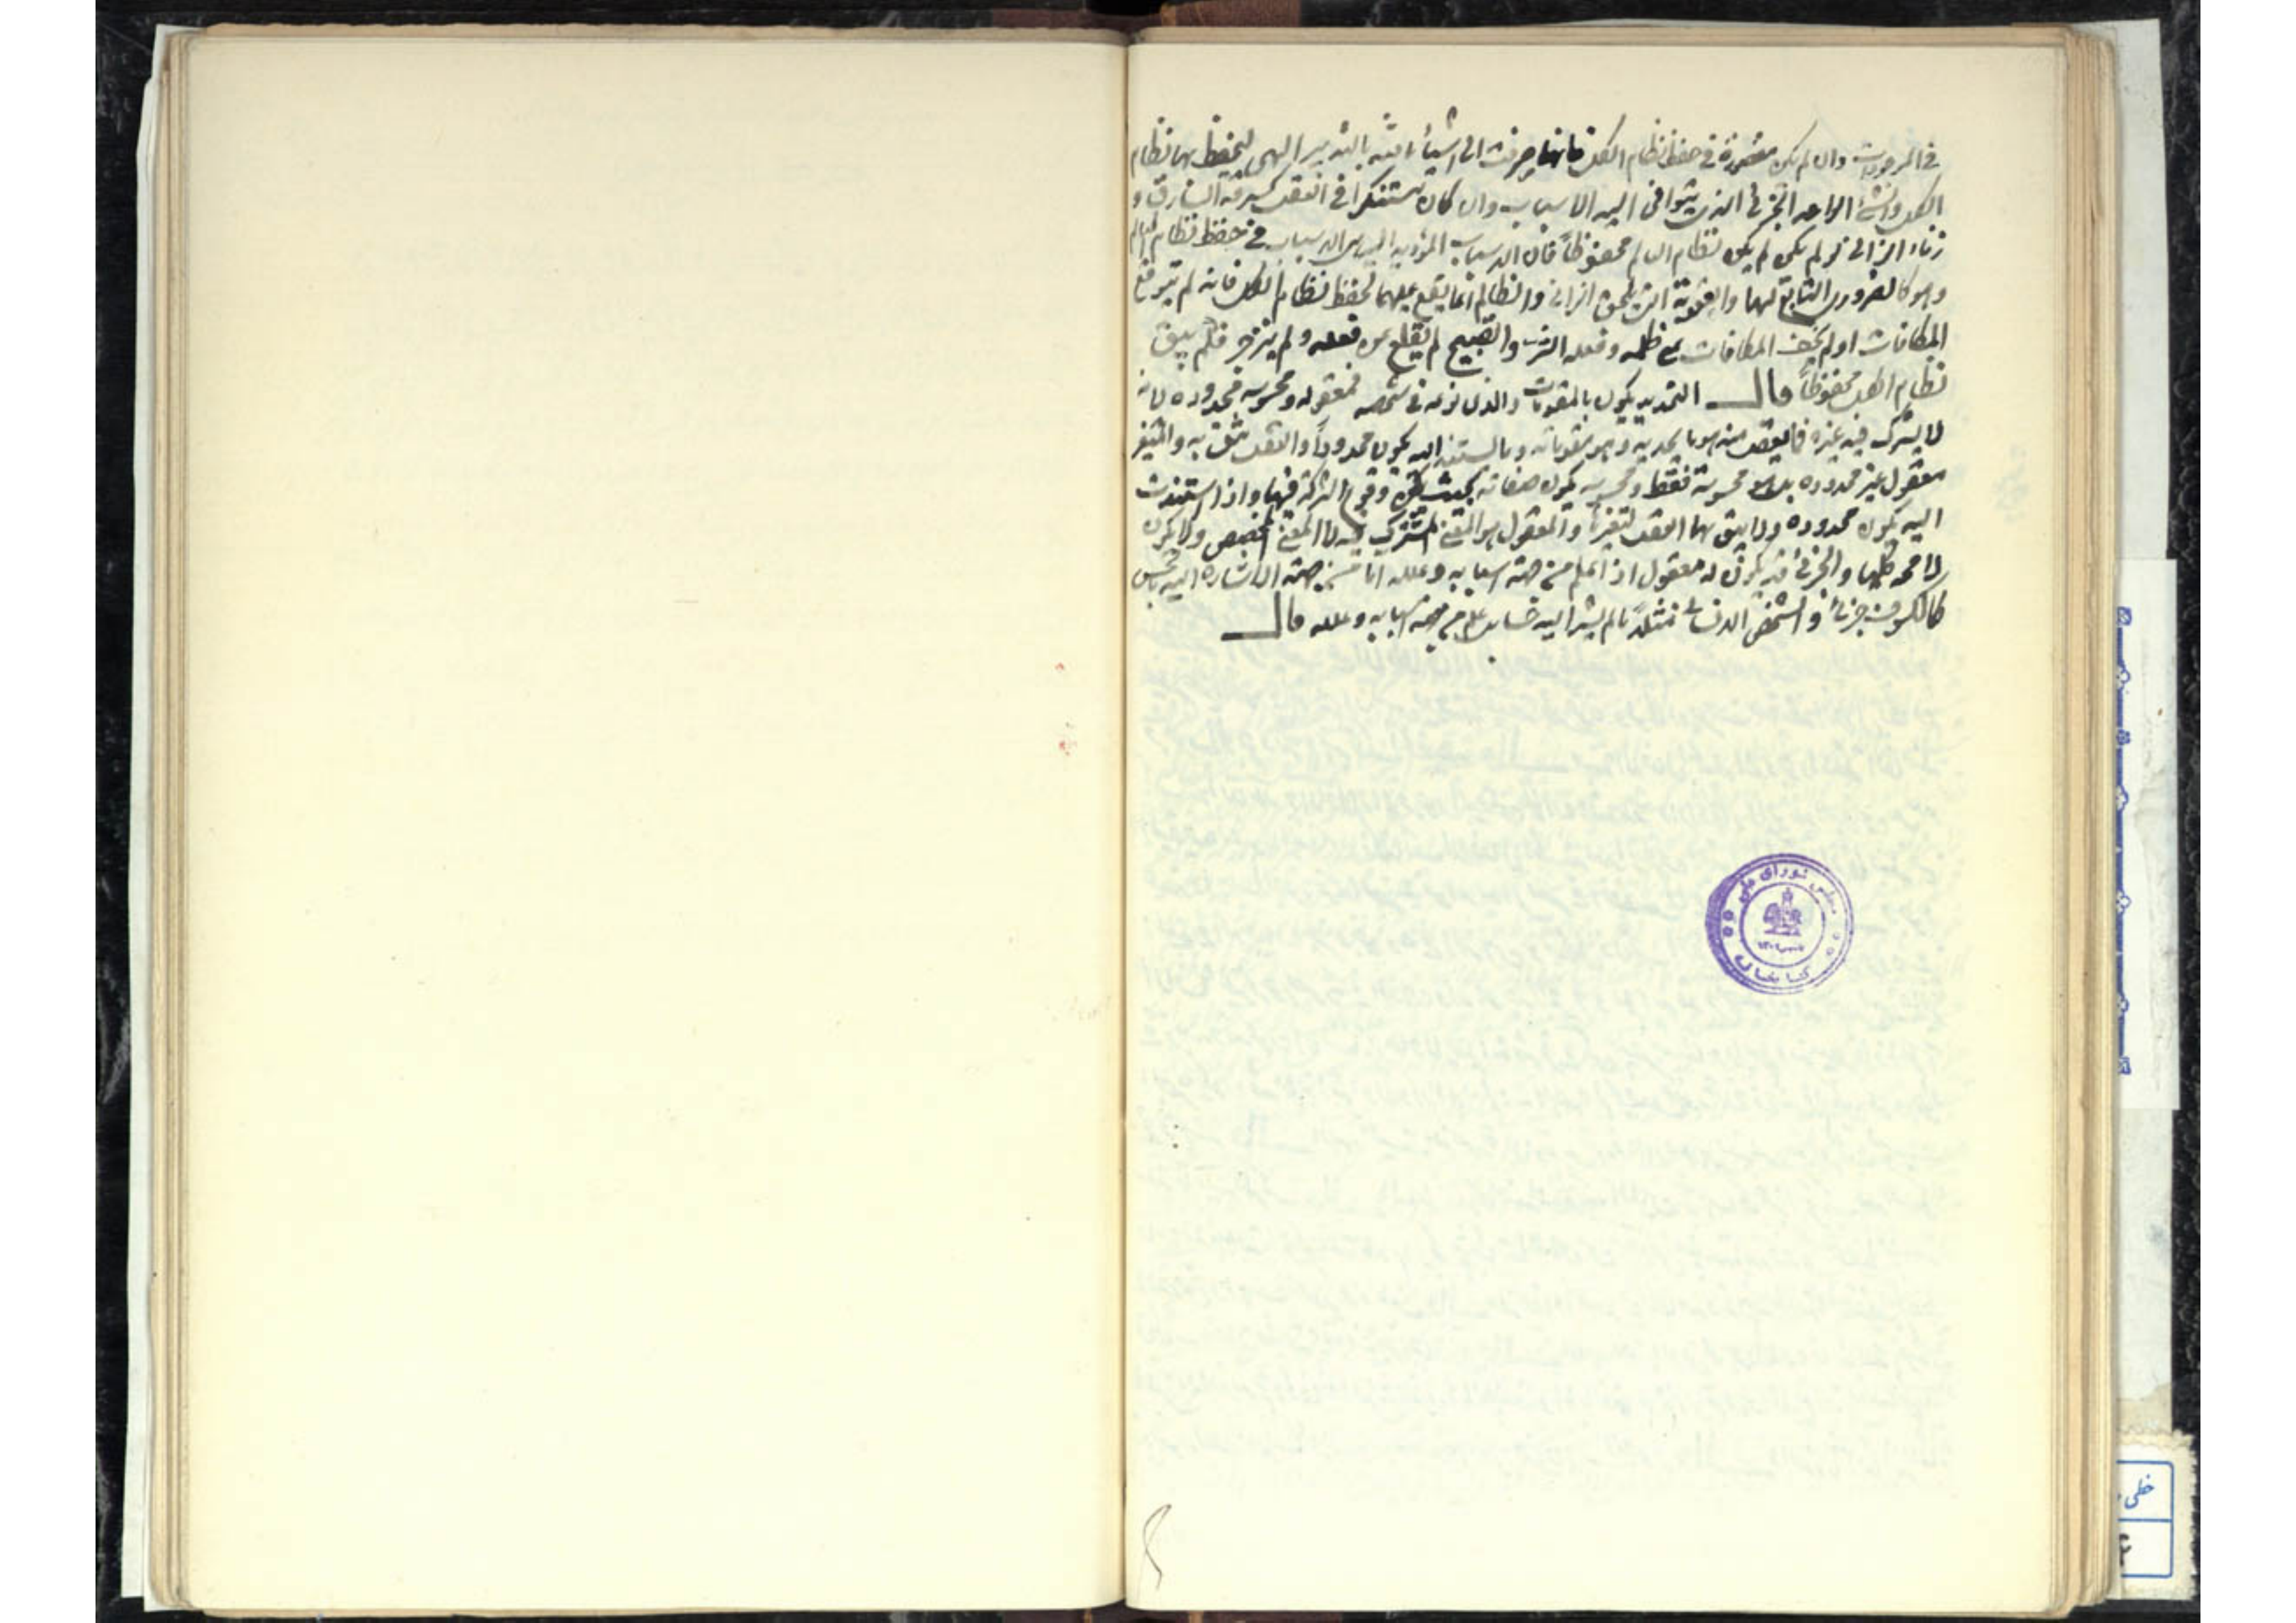 في الموجودات وان لم يكن مقصورة في حفظ نظام الكل فانها صرفت الى اشياء الشر بالتدبير الهى ليحفظ بها نظام
الكل والشئ الواحد الجزئى الذى يتوافى اليه الاسباب وان كان مستنكرا في العقل كسرقة السارق و
زناء الزانى لو لم يكن لم يكن نظام العالم محفوظاً فان الاسباب المؤدية اليه من الاسباب في حفظ نظام العالم
وهو كالضرورى التابع لها والعقوبة التى تلحق الزانى والظالم انما يقع عليهما لحفظ نظام الكل فانه لم يتوقع
المكافات او لم يخف المكافات على ظلمه وفعله الشر والقبيح لم يقلع عن فعله ولم ينزجر فلم يبق
نظام الكل محفوظاً قال التحديد يكون بالمقومات والذى نوعه في شخصه فمعقوله ومحسوسه محدوده لانه
لا يشرك فيه غيره فالعقل منه هو ما يحد به وهو مقوماته وما استند اليه يكون محدوداً والعقل يثق به والمتغير
معقول غير محدوده بل هو محسوسة فقط ومحسوسه يكون صفاته بحيث يمكن وقوع الشركة فيها واذا استندت
اليه يكون محدوده ولا يثق بها العقل لتغيرها والمعقول هو المعنى المشترك فيه لا المعنى المخصص ولا يكون
لا محه كليا والجزئى قد يكون له معقول اذا علم من جهة اسبابه وعلله اما من جهة الاشارة اليه بالحس
كالكسوف جزئى والشخص الانسانى مثلاً ما لم يشر اليه علم من جهة اسبابه وعلله قال
مجلس شورای ملی
کتابخانه
خطی